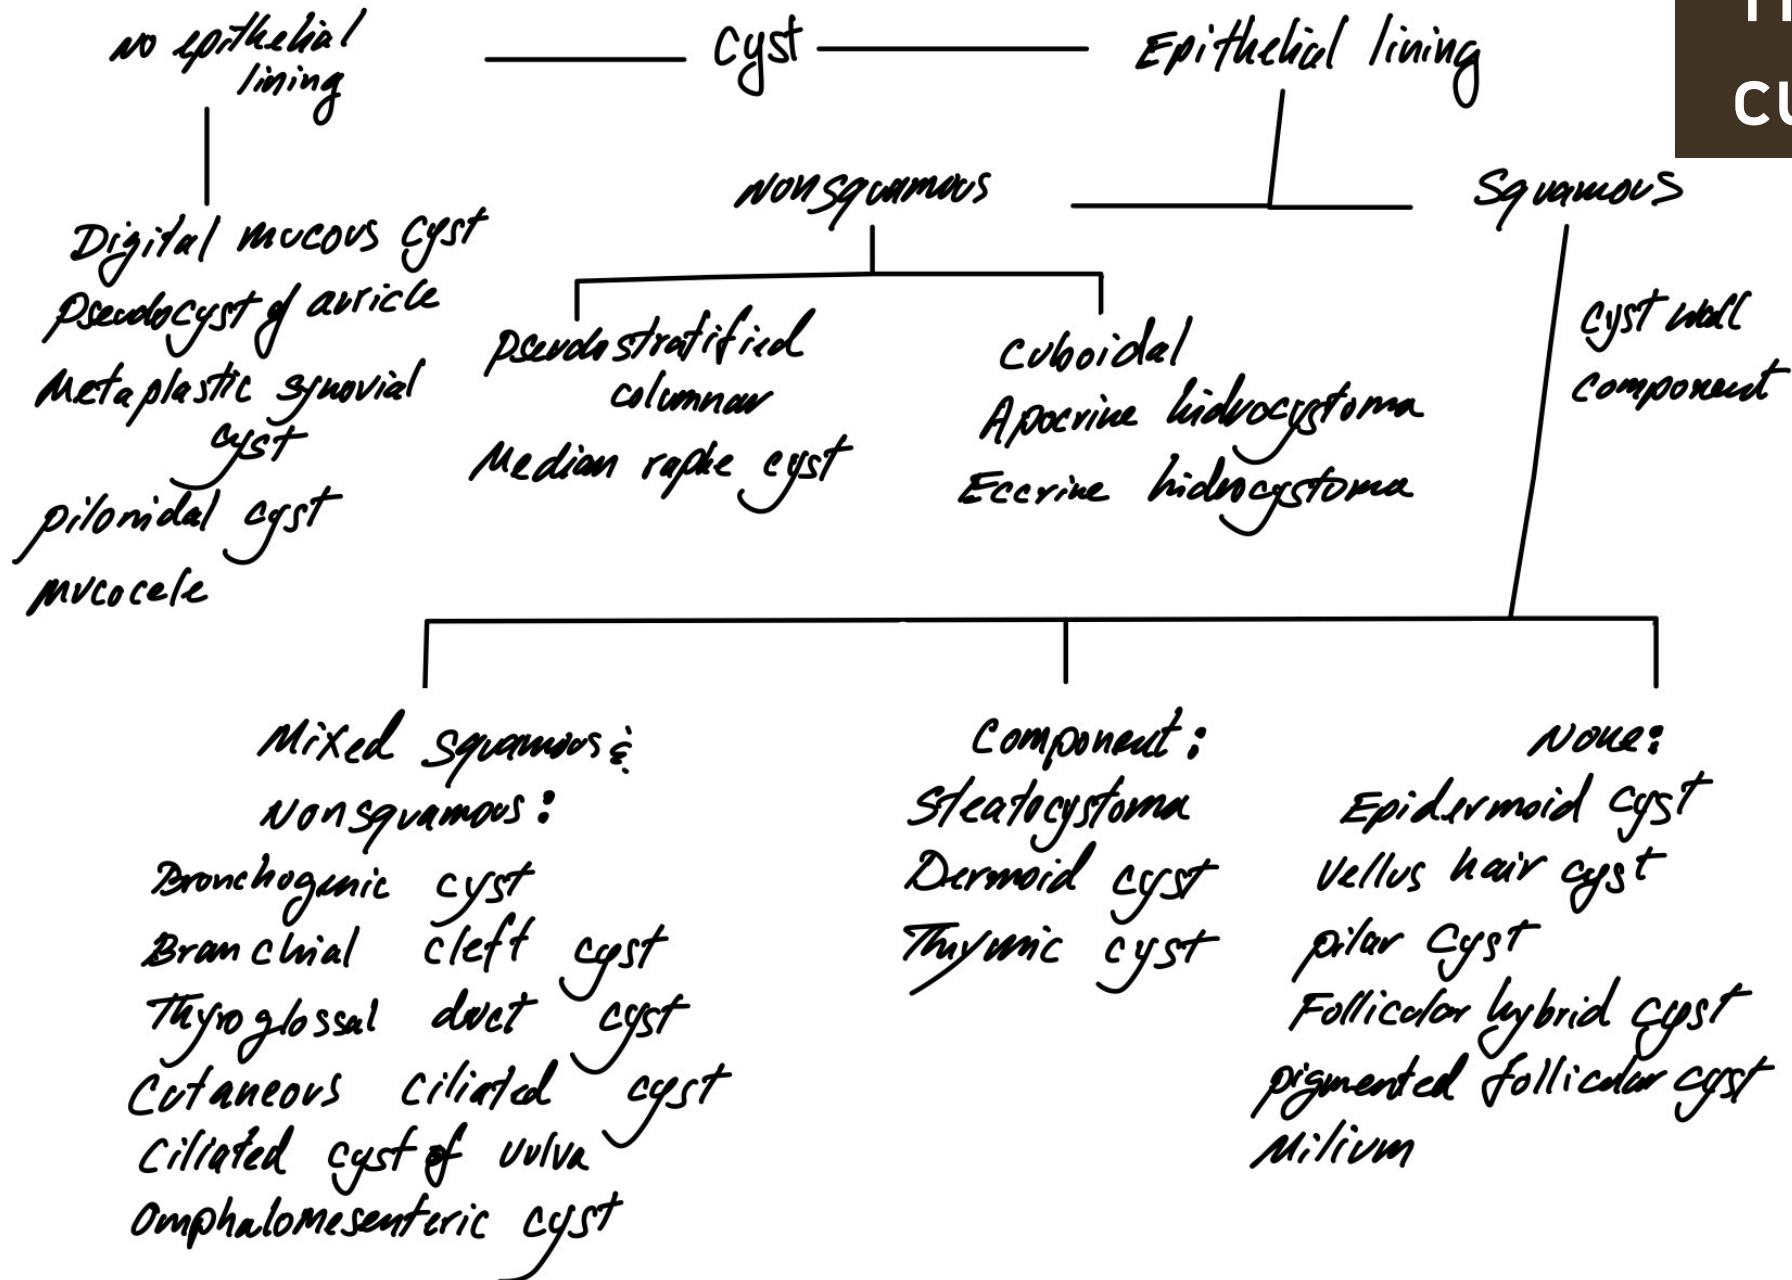 no epithelial
lining
Cyst
Epithelial lining
Digital mucous cyst
Pseudocyst of auricle
Metaplastic synovial
cyst
pilonidal cyst
mucocele
Nonsquamous
Pseudostratified
columnar
Median raphe cyst
Cuboidal
Apocrine hidrocystoma
Eccrine hidrocystoma
Squamous
Cyst wall
component
Mixed squamous &
Nonsquamous:
Bronchogenic cyst
Branchial cleft cyst
Thyroglossal duct cyst
Cutaneous ciliated cyst
Ciliated cyst of vulva
Omphalomesenteric cyst
Component:
Steatocystoma
Dermoid cyst
Thymic cyst
None:
Epidermoid cyst
Vellus hair cyst
pilar cyst
Follicular hybrid cyst
pigmented follicular cyst
Milium